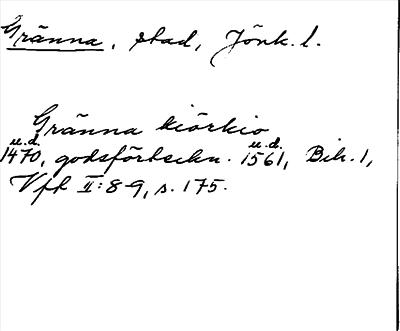 Gränna, stad, Jönk. l.
Gränna kiörkio
u.d. u.d.
1470, godsförteckn. 1561, Bih. 1,
Vfk II: 8-9, s. 175.